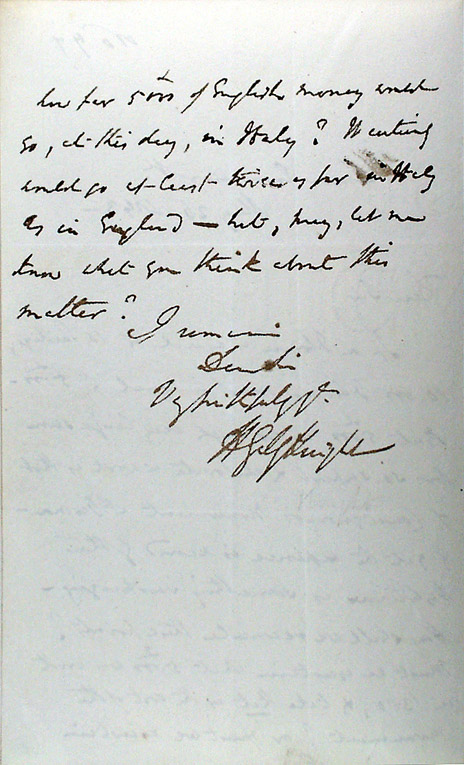 how far 5000 of English money would
go, at this day, in Italy? Wanting
would go at least thrice as far in Italy
as in England — but, pray, let me
know what you think about this
matter?
I remain
Dear Sir
Very faithfully yrs.
H G Knight